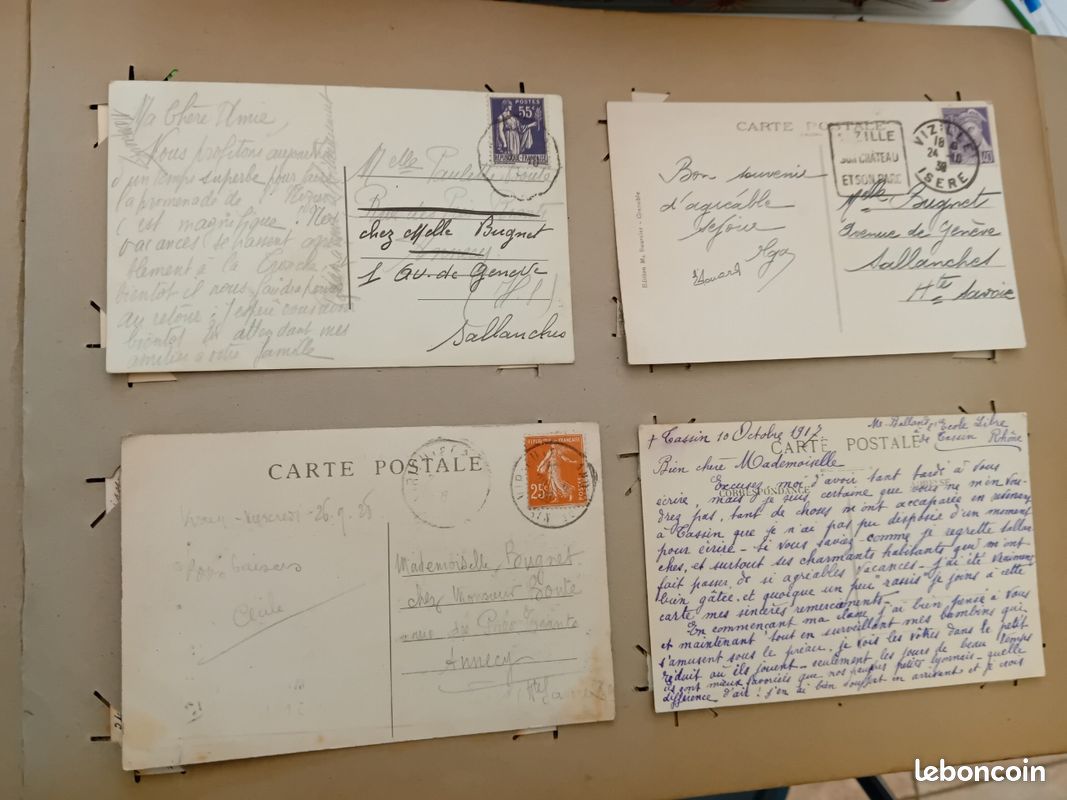 Ma Chère Amie,
Nous profitons aujourd'
d'un temps superbe pour faire
la promenade de
c'est magnifique. Nos
vacances se passent agréa
blement à la
bientôt il nous faudra penser
au retour. J'espère vous voir
bientôt en attendant mes
amitiés à votre famille
POSTES
55c
RÉPUBLIQUE FRANÇAISE
Melle Paulette
chez Melle Bugnet
1 Av. de Genève
(H.S.)
Sallanches
CARTE POSTALE
VIZILLE
SON CHÂTEAU
ET SON PARC
VIZILLE
18
24 - 10
39
ISERE
40
Bon souvenir
d'agréable
séjour
Olga
Melle Bugnet
Avenue de Genève
Sallanches
Hte Savoie
Grenoble
CARTE POSTALE
25c
26.9.25
bons baisers
Cécile
Mademoiselle Bugnet
chez Monsieur
rue des Prés
Annecy
Hte Savoie
+ Tassin 10 Octobre 1917
Ecole Libre
de Tassin Rhône
CARTE POSTALE
Bien chère Mademoiselle
CORRESPONDANCE
Excusez moi d'avoir tant tardé à vous
écrire, mais je suis certaine que vous ne m'en vou-
drez pas, tant de choses m'ont accaparée en
à Tassin que je n'ai pas pu disposer d'un moment
pour écrire - Si vous saviez comme je regrette Sallan
ches, et surtout ses charmants habitants qui m'ont
fait passer de si agréables vacances - j'ai été vraiment
bien gâtée, et quoique un peu "rassis" je joins à cette
carte mes sincères remerciements -
En commençant ma classe j'ai bien pensé à vous
et maintenant tout en surveillant mes bambins qui
s'amusent sous le préau, je vois les vôtres dans le petit
réduit où ils jouent - seulement les jours de beau temps
ils sont mieux favorisés que nos pauvres petits lyonnais - quelle
différence d'air! j'en ai bien souffert en arrivant et je vois
leboncoin